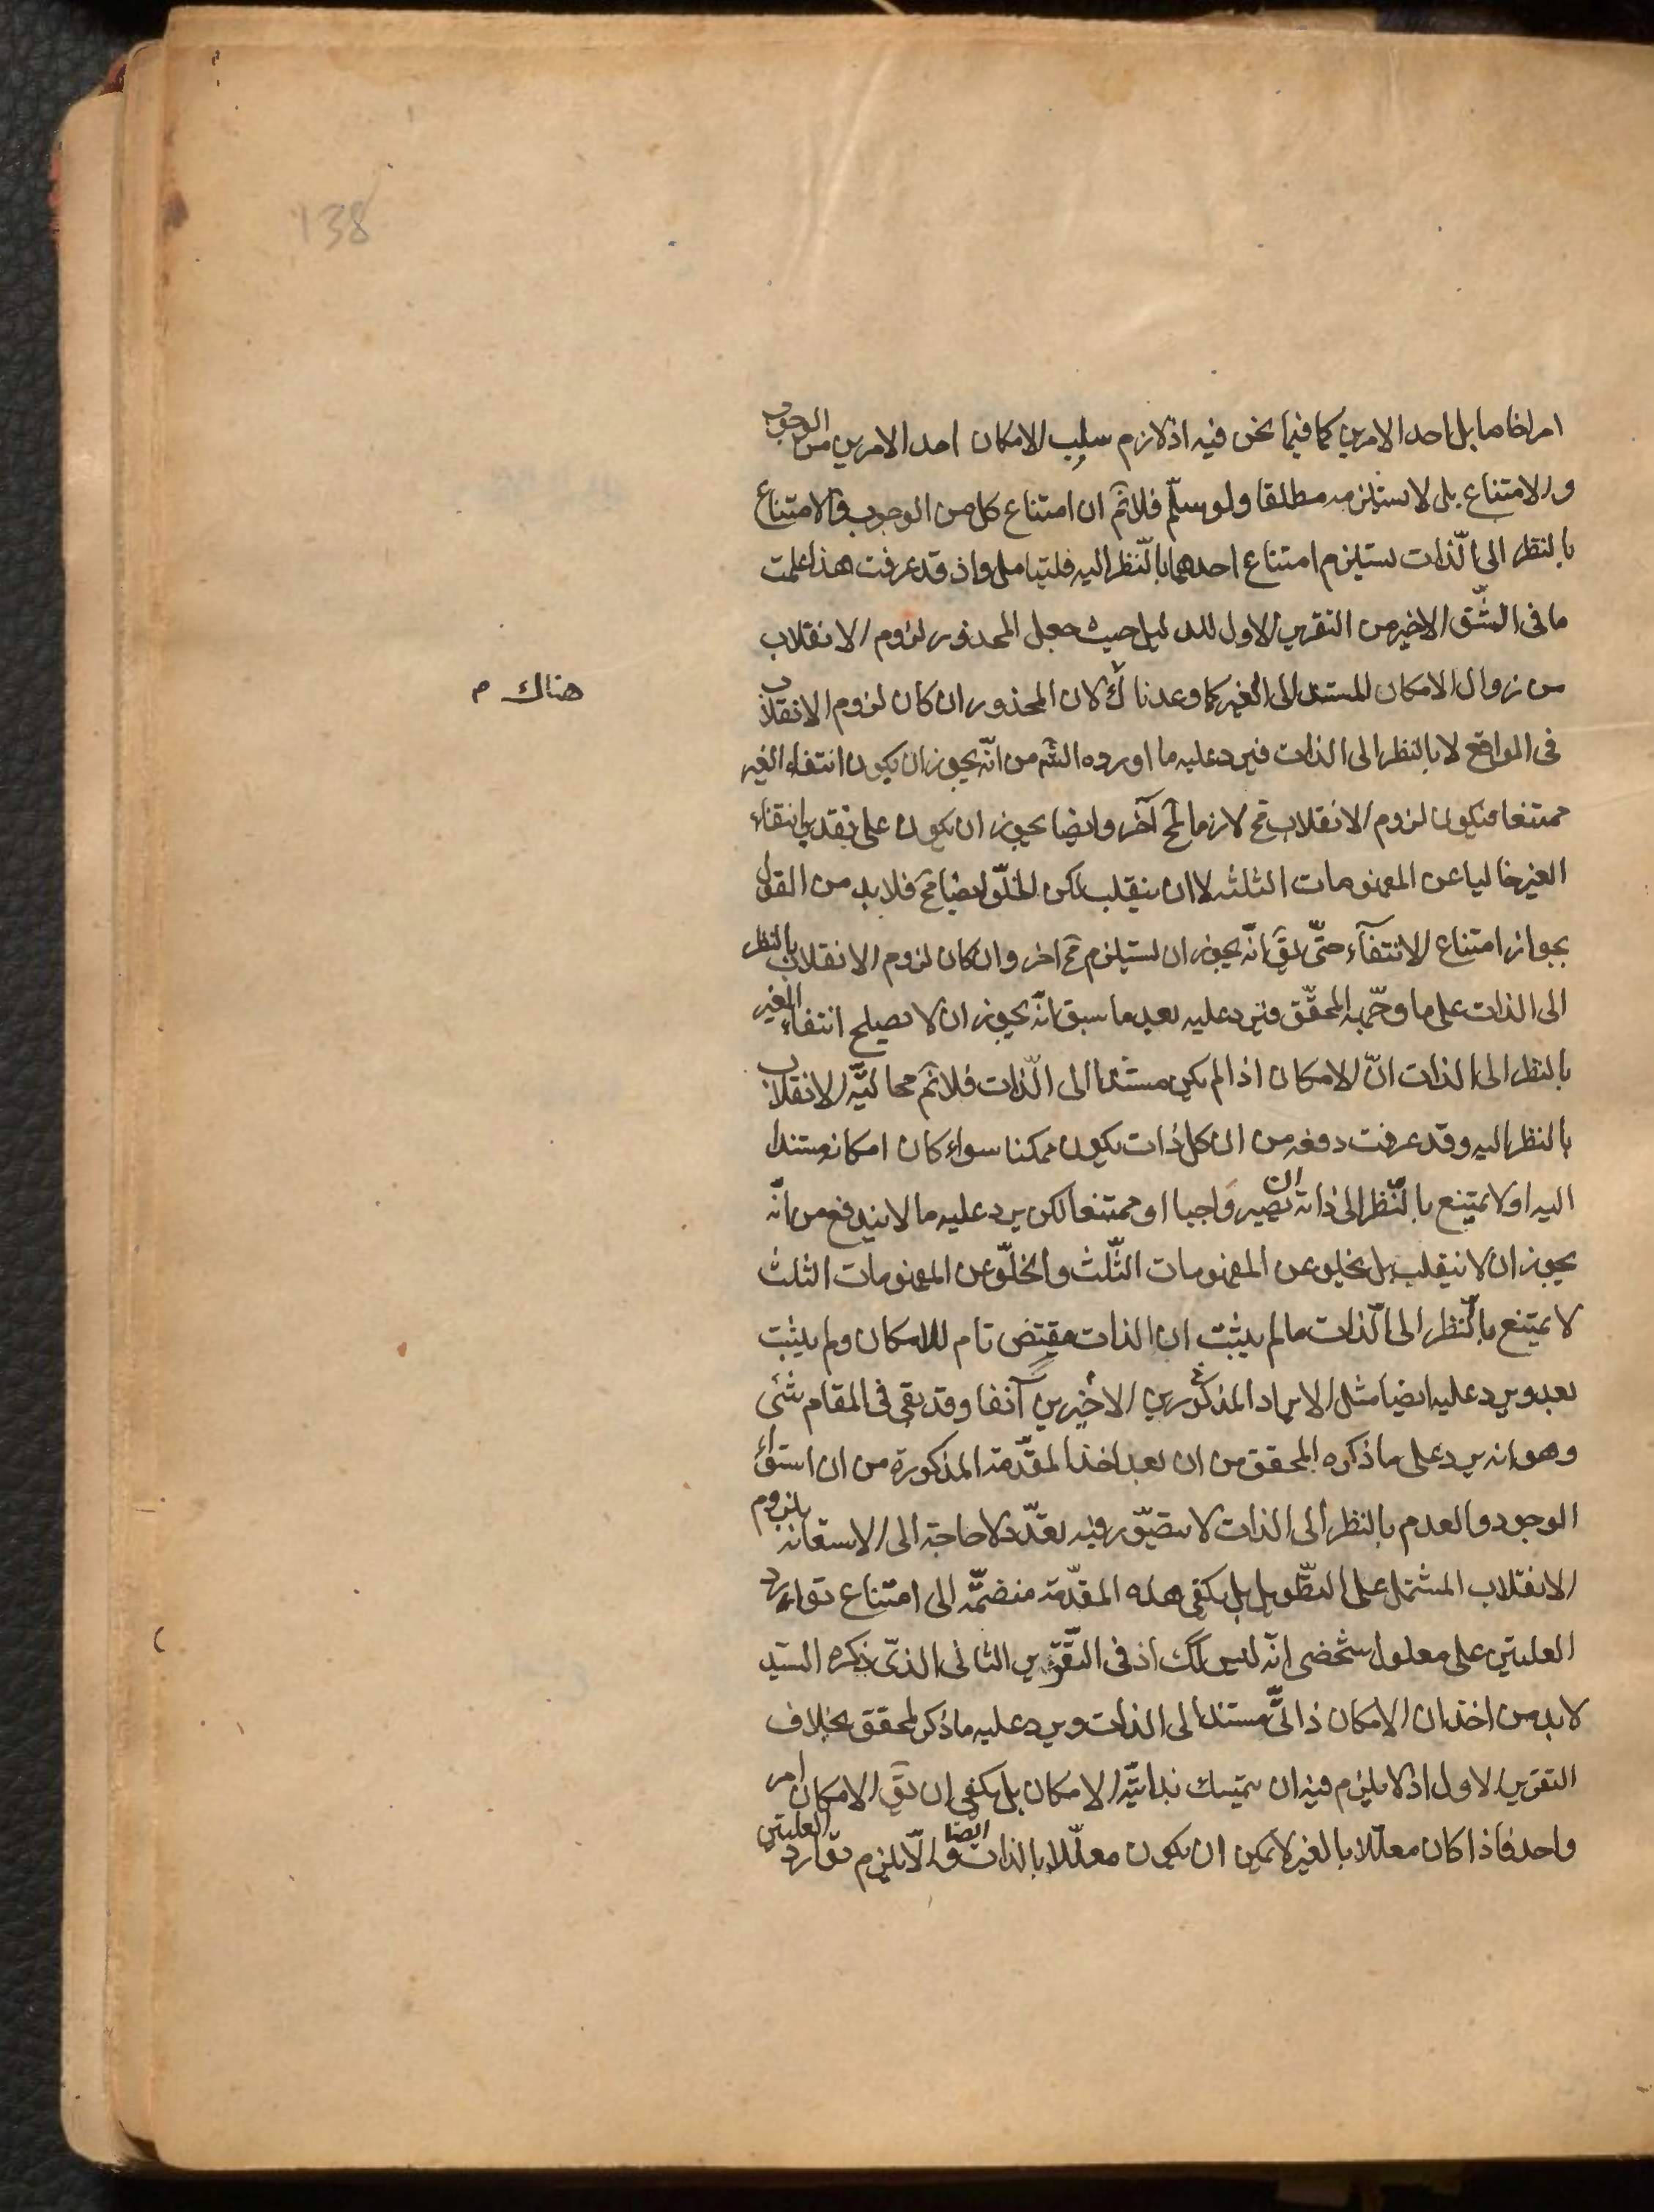 138
امرا خاصا بل احد الامرين كما فيما نحن فيه اذ لازم سلب الامكان احد الامرين من الوجوب
والامتناع بل لا يستلزمه مطلقا ولو سلّم فلانم ان امتناع كل من الوجوب والامتناع
بالنظر الى الذات يستلزم امتناع احدهما بالنظر اليه فليتامل واذ قد عرفت هذا علمت
ما فى الشّق الاخير من التقرير الاول للدليل حيث جعل المحذور لزوم الانقلاب
من زوال الامكان المستند الى الغير كما وعدناك لان المحذور ان كان لزوم الانقلاب
هناك م
فى الواقع لا بالنظر الى الذات فيرد عليه ما اورده الشم من انّه يجوز ان يكون انتفاء الغير
ممتنعا فيكون لزوم الانقلاب مح لازما لمح آخر وايضا يجوز ان يكون على تقدير انتفاء
الغير خاليا عن المفهومات الثلثه لا ان ينقلب لكن الخلّو ايضا مح فلا بد من القول
بجواز امتناع الانتفآء حتّى يق انّه يجوز ان يستلزم مح اخر وان كان لزوم الانقلاب بالنظر
الى الذات على ما وجّهه المحقّق فيرد عليه بعد ما سبق انّه يجوز ان لا يصلح انتفاء الغير
بالنظر الى الذات انّ الامكان اذا لم يكن مستندا الى الذّات فلانم محاليّة الانقلاب
بالنظر اليه وقد عرفت دفعه من ان كل ذات يكون ممكنا سواء كان امكانه مستندا
اليه اولا يمتنع بالنّظر الى ذاته ان تصير واجبا او ممتنعا لكن يرد عليه ما لا يندفع من انّه
يجوز ان لا ينقلب بل يخلو عن المفهومات الثّلث والخلّو عن المفهومات الثلث
لا يمتنع بالنّظر الى الذّات ما لم يثبت ان الذات مقتض تام للامكان ولم يثبت
بعد ويرد عليه ايضا مثل الايراد المذكورين الاخيرين آنفا وقد بقى فى المقام شئى
وهو انه يرد على ما ذكره المحقق من ان بعد اخذ المقدّمة المذكورة من ان استواء
الوجود والعدم بالنظر الى الذات لا يتصوّر فيه تعدّد لا حاجة الى الاستعانه بلزوم
الانقلاب المشتمل على التطّويل بل يكفى هذه المقدّمة منضمّة الى امتناع توارد
العلتين على معلول شخصى انّه ليس كك اذ فى التّقرير الثانى الذى ذكره السّيد
لا بد من اخذ ان الامكان ذاتىّ مستند الى الذات ويرد عليه ما ذكر المحقق بخلاف
التقرير الاول اذ لا يلزم فيه ان يتمسك بذاتيّة الامكان بل يكفى ان يق الامكان امر
واحد فاذا كان معلّلا بالغير لا يمكن ان يكون معلّلا بالذات ايضا والّا يلزم توارد العلتين